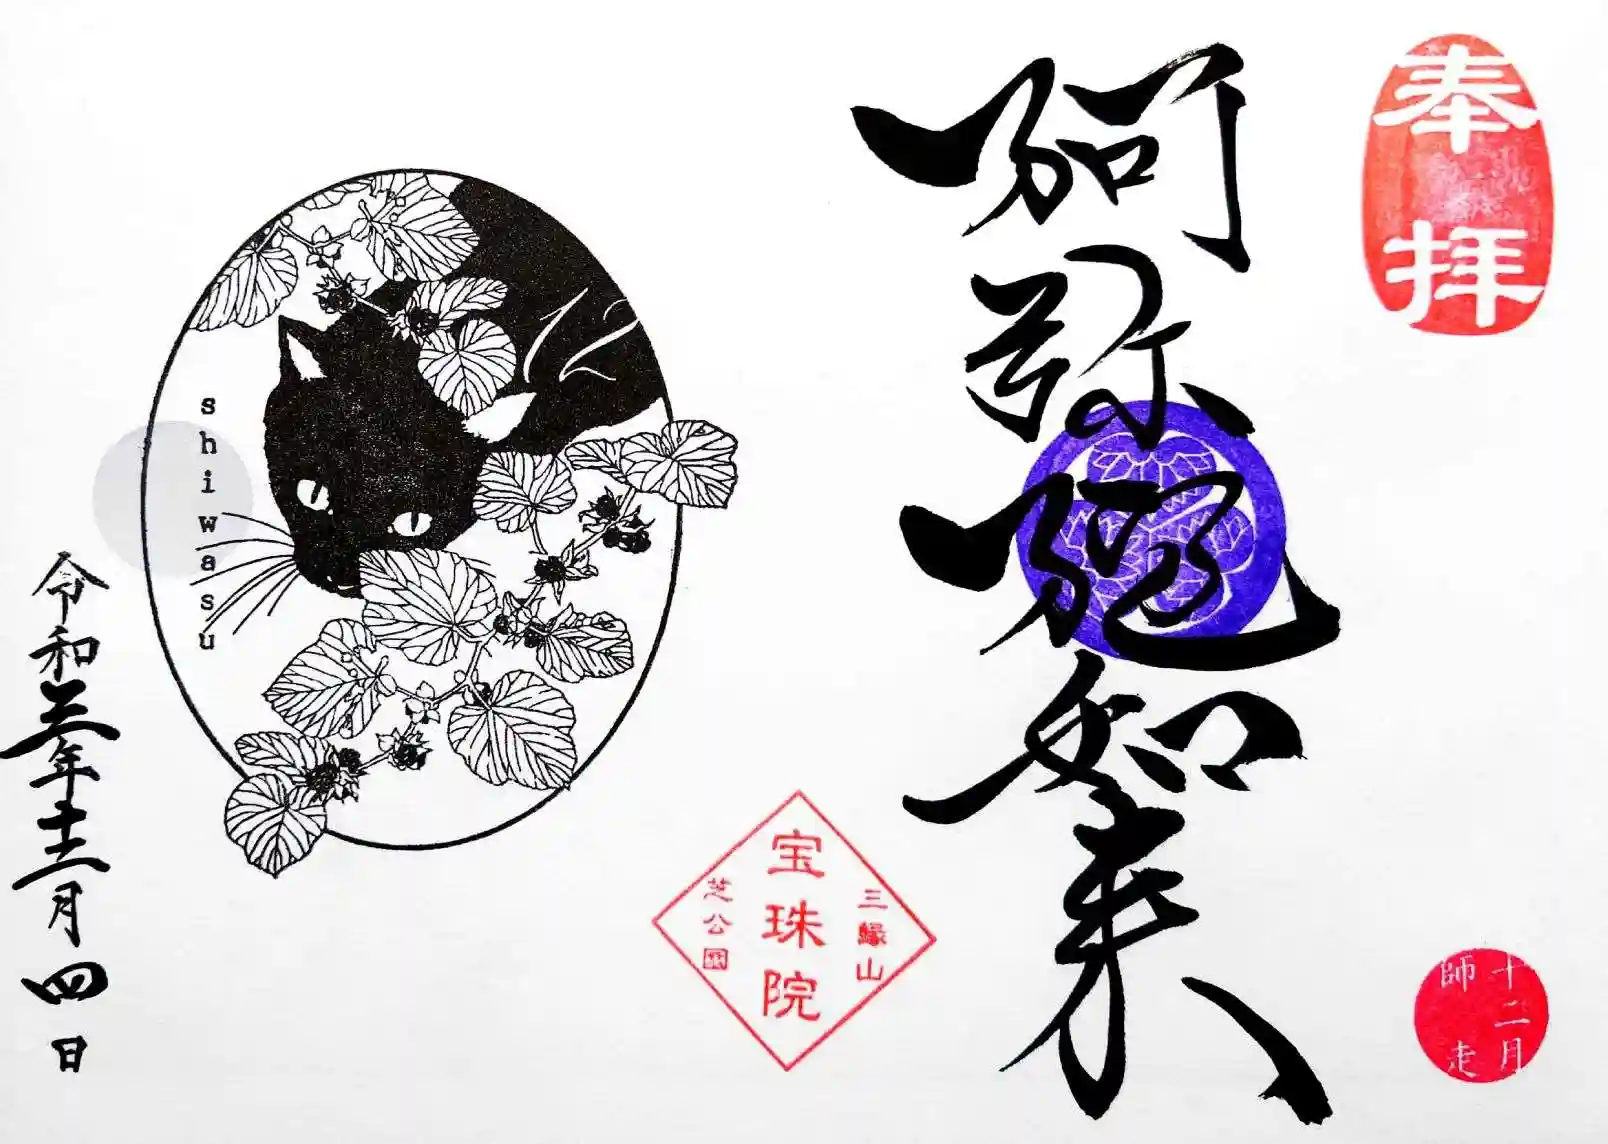 奉拝
阿弥陀如来
十二月
師走
三縁山
宝珠院
芝公園
12
shiwasu
令和三年十二月四日